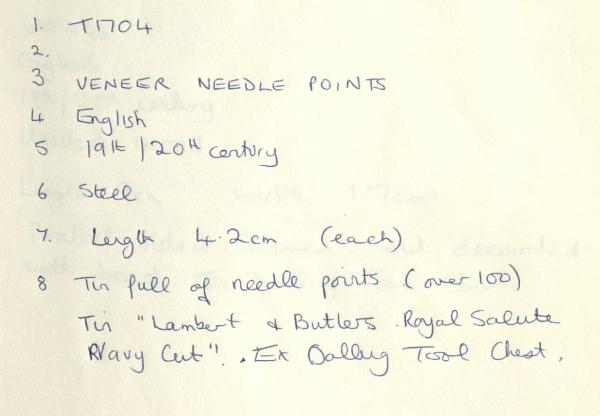 1. T1704
2.
3 VENEER NEEDLE POINTS
4 English
5 19th / 20th century
6 Steel
7. Length 4.2cm (each)
8 Tin full of needle points (over 100)
Tin "Lambert & Butlers. Royal Salute
Navy Cut". . Ex Tool Chest.